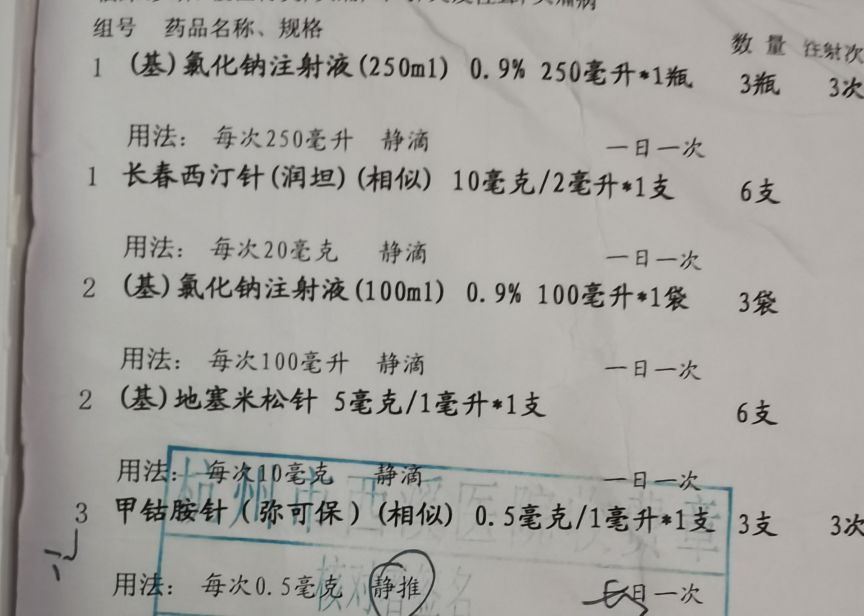 组号 药品名称、规格 数量 注射次
1 (基)氯化钠注射液(250ml) 0.9% 250毫升*1瓶 3瓶 3次
用法: 每次250毫升 静滴 一日一次
1 长春西汀针(润坦)(相似) 10毫克/2毫升*1支 6支
用法: 每次20毫克 静滴 一日一次
2 (基)氯化钠注射液(100ml) 0.9% 100毫升*1袋 3袋
用法: 每次100毫升 静滴 一日一次
2 (基)地塞米松针 5毫克/1毫升*1支 6支
用法: 每次10毫克 静滴 一日一次
杭州市西溪医院收费章
3 甲钴胺针(弥可保)(相似) 0.5毫克/1毫升*1支 3支 3次
用法: 每次0.5毫克 静推 日一次
核对 签名